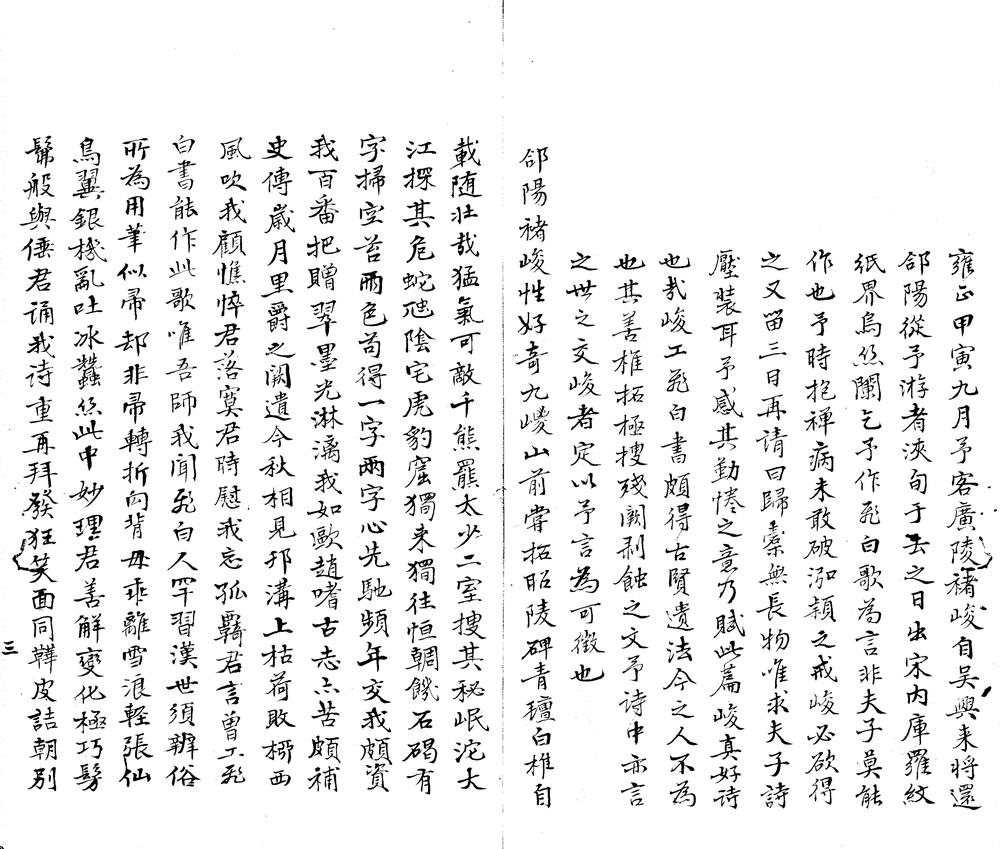 雍正甲寅九月予客廣陵褚峻自吳興来將還
郃陽從予游者浹旬于去之日出宋内庫羅紋
紙界烏絲闌乞予作飛白歌為言非夫子莫能
作也予時抱禅病未敢破泓潁之戒峻必欲得
之又留三日再请曰歸橐無長物唯求夫子詩
壓裝耳予感其勤惓之意乃賦此篇峻真好诗
也哉峻工飛白書頗得古賢遺法今之人不為
也其善椎拓極搜殘阙剥蝕之文予诗中亦言
之世之交峻者定以予言為可徴也
郃陽褚峻性好奇九嵕山前嘗拓昭陵碑青氊白椎自
載随壮哉猛氣可敵千熊羆太少二室搜其秘岷沱大
江探其危蛇虺陰宅虎豹窟獨来獨往恒輖饑石碣有
字掃空苔兩色苟得一字兩字心先馳頻年交我頗資
我百番把贈翠墨光淋漓我如歐趙嗜古志亦苦頗補
史傳歲月里爵之闕遺今秋相見邗溝上枯荷敗柳西
風吹我顧憔悴君落寞君時慰我忘孤羇君言曾工飛
白書能作此歌唯吾師我聞飛白人罕習漢世須辨俗
所為用筆似帚却非帚轉折向背毋乖離雪浪輕張仙
鳥翼銀機亂吐冰蠶絲此中妙理君善解變化極巧髣
髴般與倕君诵我诗重再拜發狂笑面同鞾皮詰朝别
三